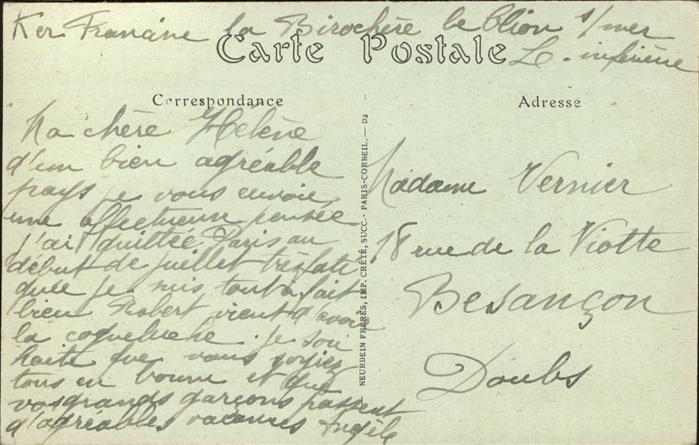 Ker Francine la Birochère le Clion s/mer
L. inférieure
Carte Postale
Correspondance
Ma chère Hélène
d'un bien agréable
pays je vous envoie
une affectueuse pensée
j'ai quittée Paris au
début de juillet très fati
guée je suis tout à fait
bien Robert vient d'avoir
la coqueluche. je sou
haite que vous soyiez
tous en bonne et que
vos grands garçons passent
d'agréables vacances Angèle
NEURDEIN FRÈRES, IMP. CRÉTÉ, SUCC.- PARIS-CORBEIL. — D2
Adresse
Madame Vernier
18 rue de la Viotte
Besançon
Doubs